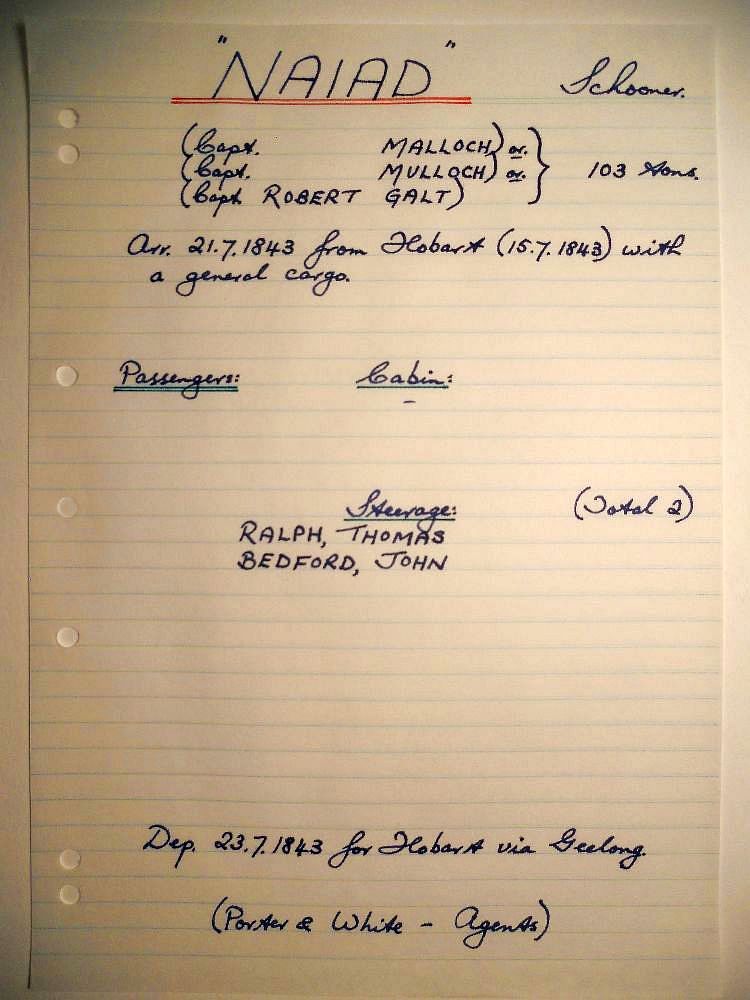 "NAIAD" Schooner.
(Capt. MALLOCH) or.
(Capt. MULLOCH) or. } 103 tons.
(Capt ROBERT GALT)
Arr. 21.7.1843 from Hobart (15.7.1843) with
a general cargo.
Passengers: Cabin:
–
Steerage: (Total 2)
RALPH, THOMAS
BEDFORD, JOHN
Dep. 23.7.1843 for Hobart via Geelong.
(Porter & White - Agents)